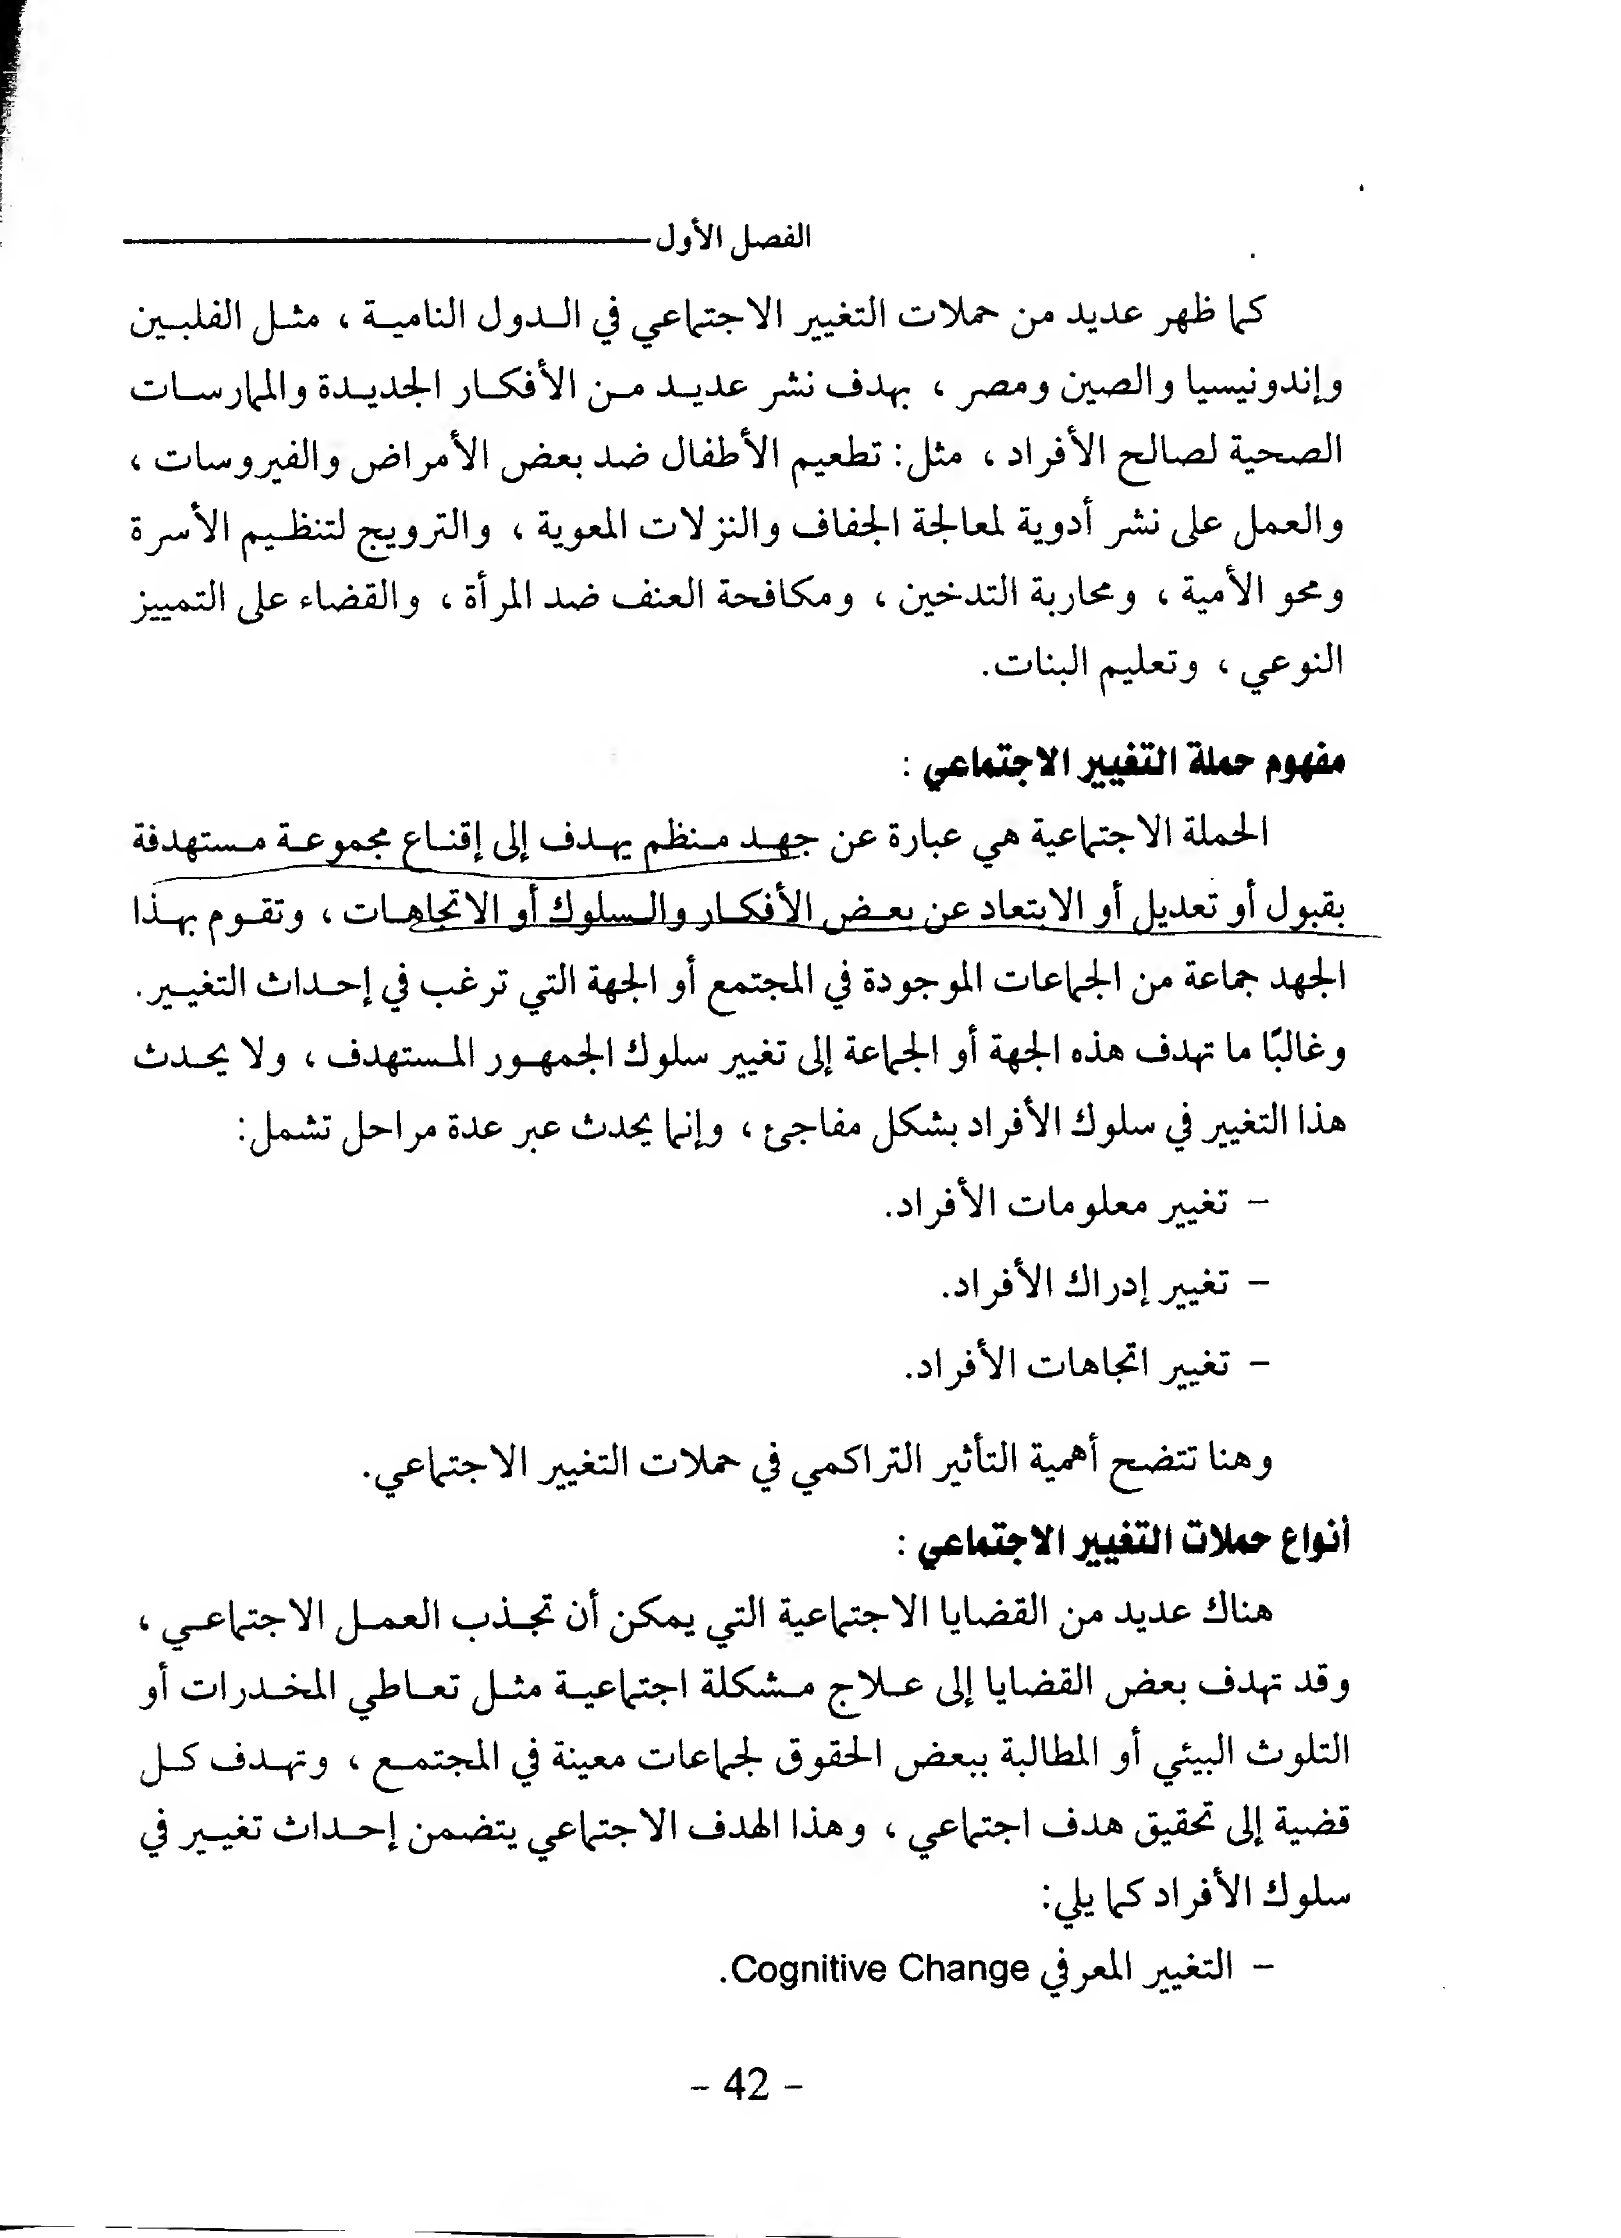 الفصل الأول
كما ظهر عديد من حملات التغيير الاجتماعي في الـدول الناميـة ، مثـل الفلبـين
وإندونيسيا والصين ومصر ، بهدف نشر عديـد مـن الأفكـار الجديـدة والممارسـات
الصحية لصالح الأفراد ، مثل: تطعيم الأطفال ضد بعض الأمراض والفيروسات ،
والعمل على نشر أدوية لمعالجة الجفاف والنزلات المعوية ، والترويج لتنظـيم الأسرة
ومحو الأمية ، ومحاربة التدخين ، ومكافحة العنف ضد المرأة ، والقضاء على التمييز
النوعي ، وتعليم البنات.
مفهوم حملة التغيير الاجتماعي :
الحملة الاجتماعية هي عبارة عن جهـد مـنظم يهـدف إلى إقنـاع مجموعـة مـستهدفة
بقبول أو تعديل أو الابتعاد عن بعـض الأفكـار والـسلوك أو الاتجاهـات ، وتقـوم بهـذا
الجهد جماعة من الجماعات الموجودة في المجتمع أو الجهة التي ترغب في إحـداث التغيـير.
وغالبًا ما تهدف هذه الجهة أو الجماعة إلى تغيير سلوك الجمهـور المـستهدف ، ولا يحـدث
هذا التغيير في سلوك الأفراد بشكل مفاجئ ، وإنما يحدث عبر عدة مراحل تشمل:
- تغيير معلومات الأفراد.
- تغيير إدراك الأفراد.
- تغيير اتجاهات الأفراد.
وهنا تتضح أهمية التأثير التراكمي في حملات التغيير الاجتماعي.
أنواع حملات التغيير الاجتماعي :
هناك عديد من القضايا الاجتماعية التي يمكن أن تجـذب العمـل الاجتماعـي ،
وقد تهدف بعض القضايا إلى عـلاج مـشكلة اجتماعيـة مثـل تعـاطي المخـدرات أو
التلوث البيئي أو المطالبة ببعض الحقوق لجماعات معينة في المجتمـع ، وتهـدف كـل
قضية إلى تحقيق هدف اجتماعي ، وهذا الهدف الاجتماعي يتضمن إحـداث تغيـير في
سلوك الأفراد كما يلي:
- التغيير المعرفي Cognitive Change.
- 42 -